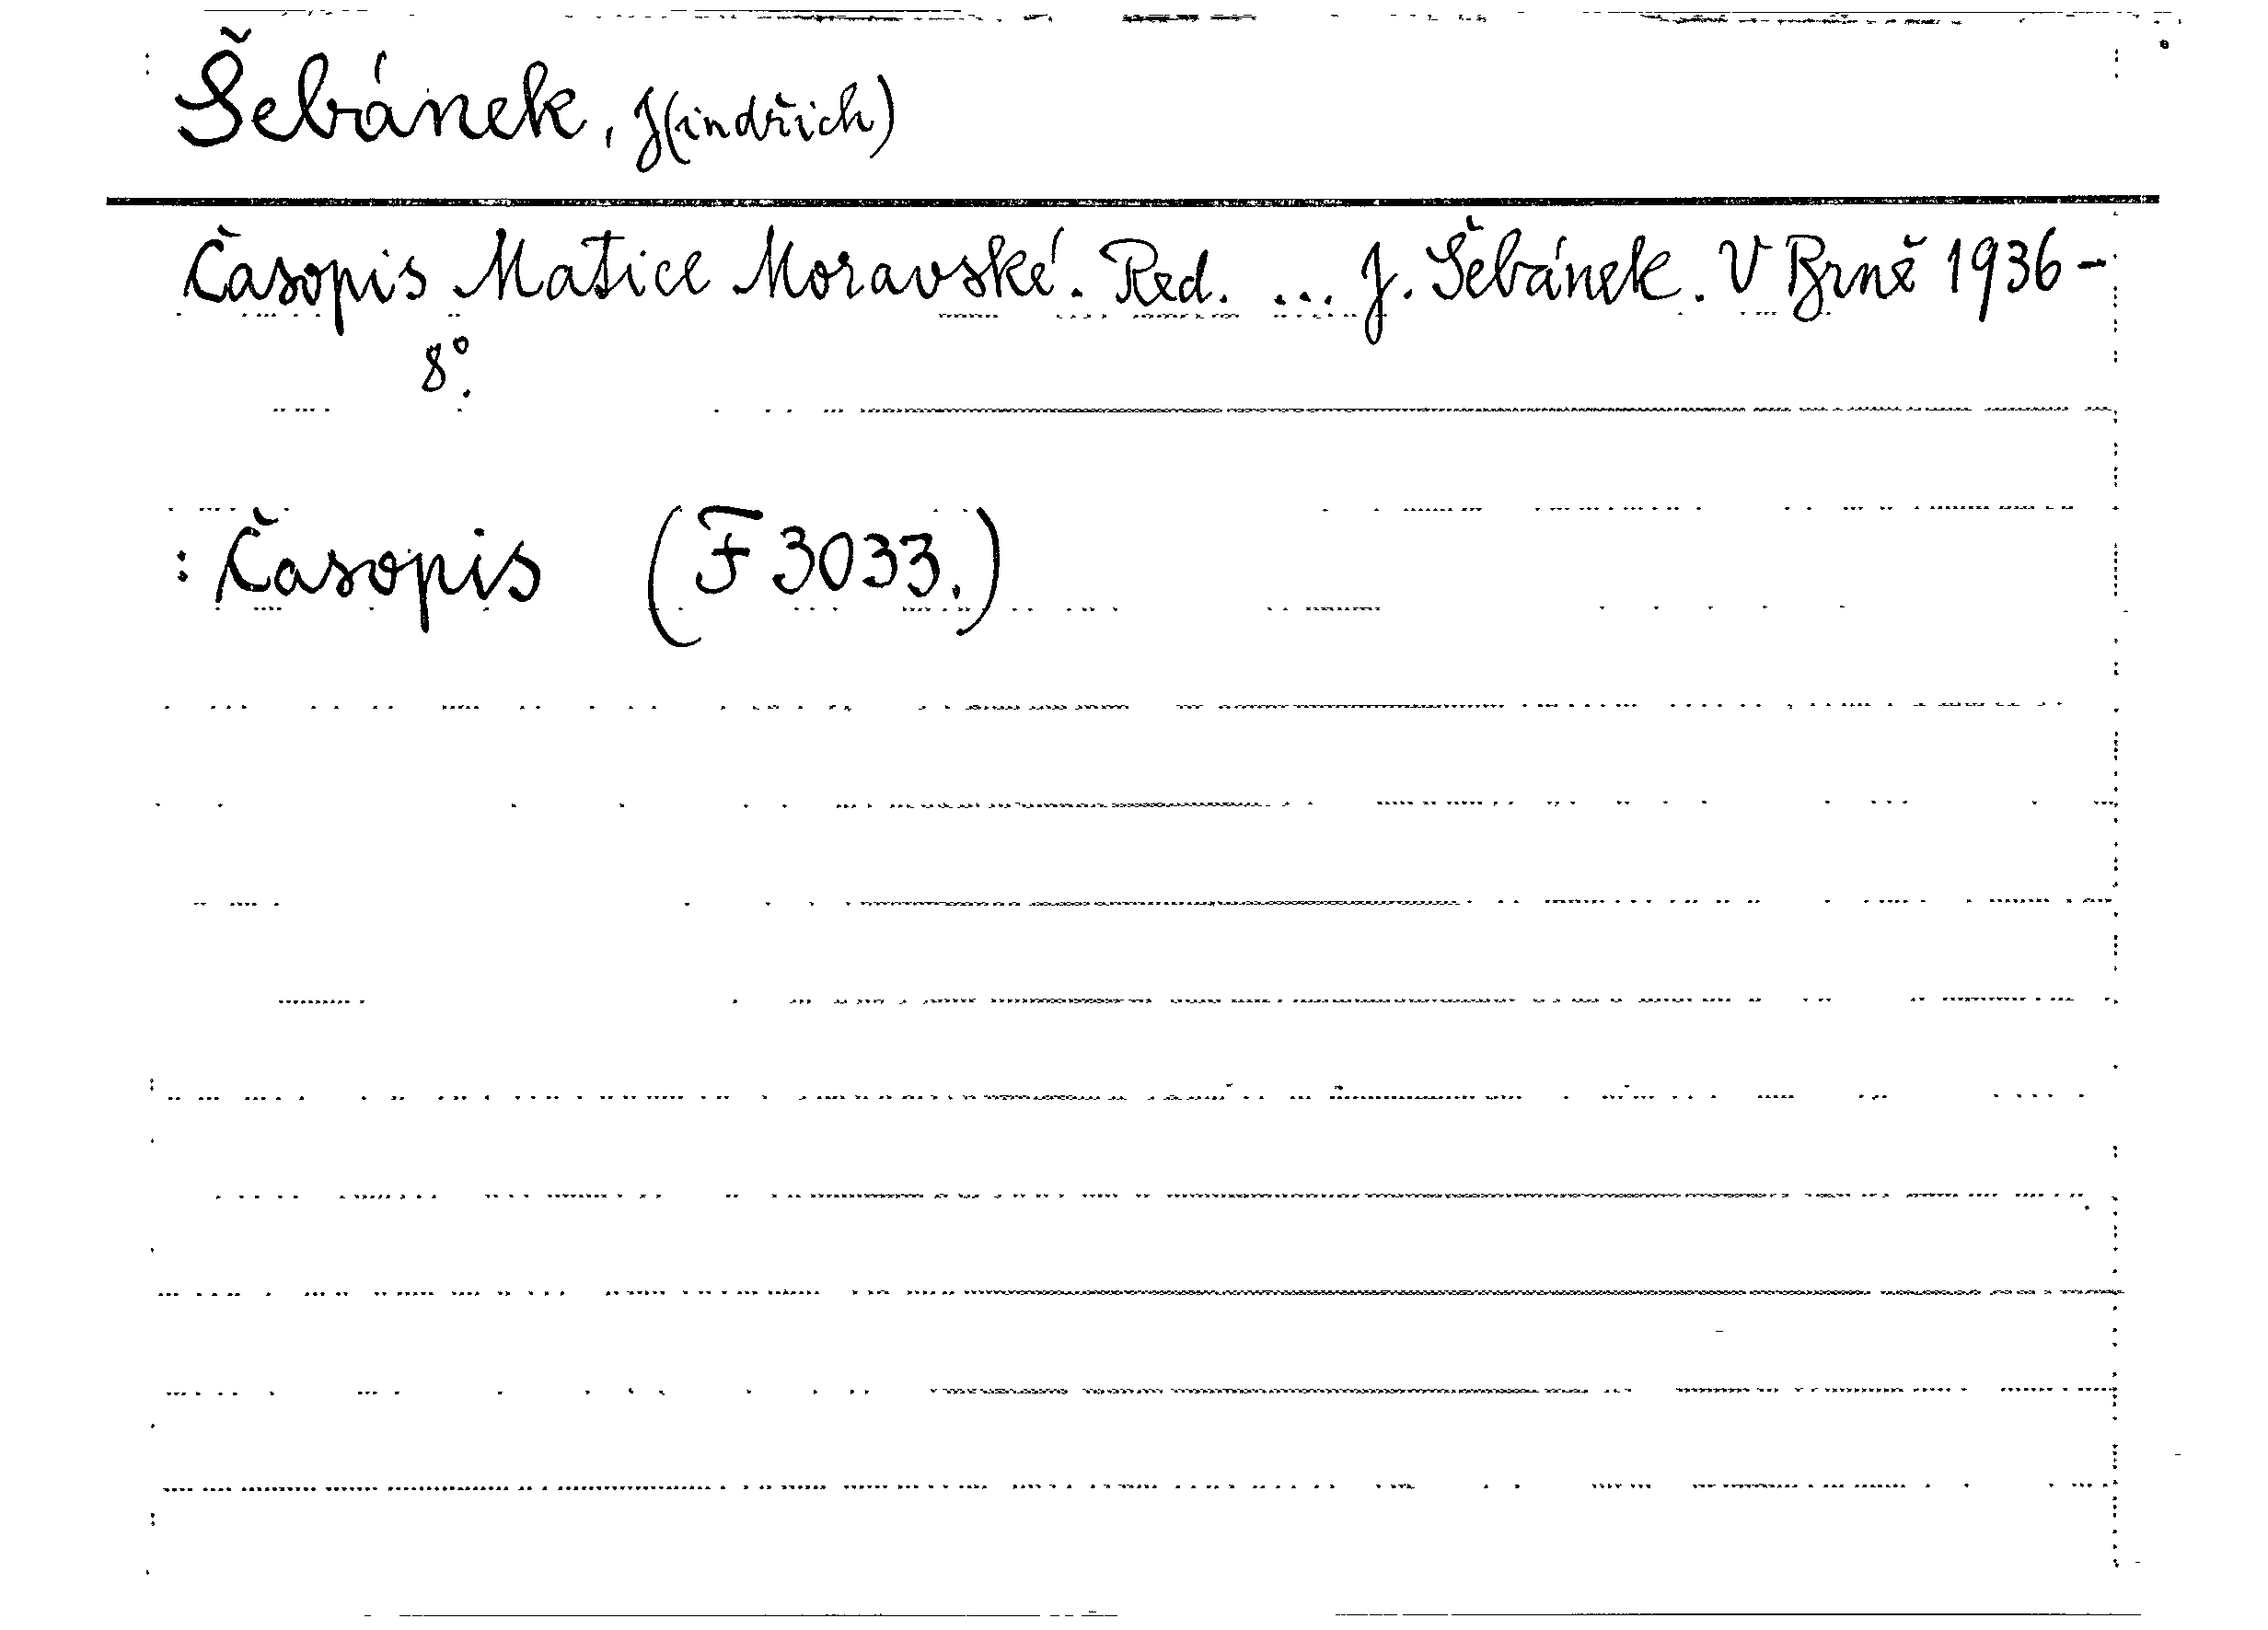 Šebánek, J(indřich)
Časopis Matice Moravské. Red. ... J. Šebánek. V Brně 1936-
8°.
: Časopis (F 3033.)